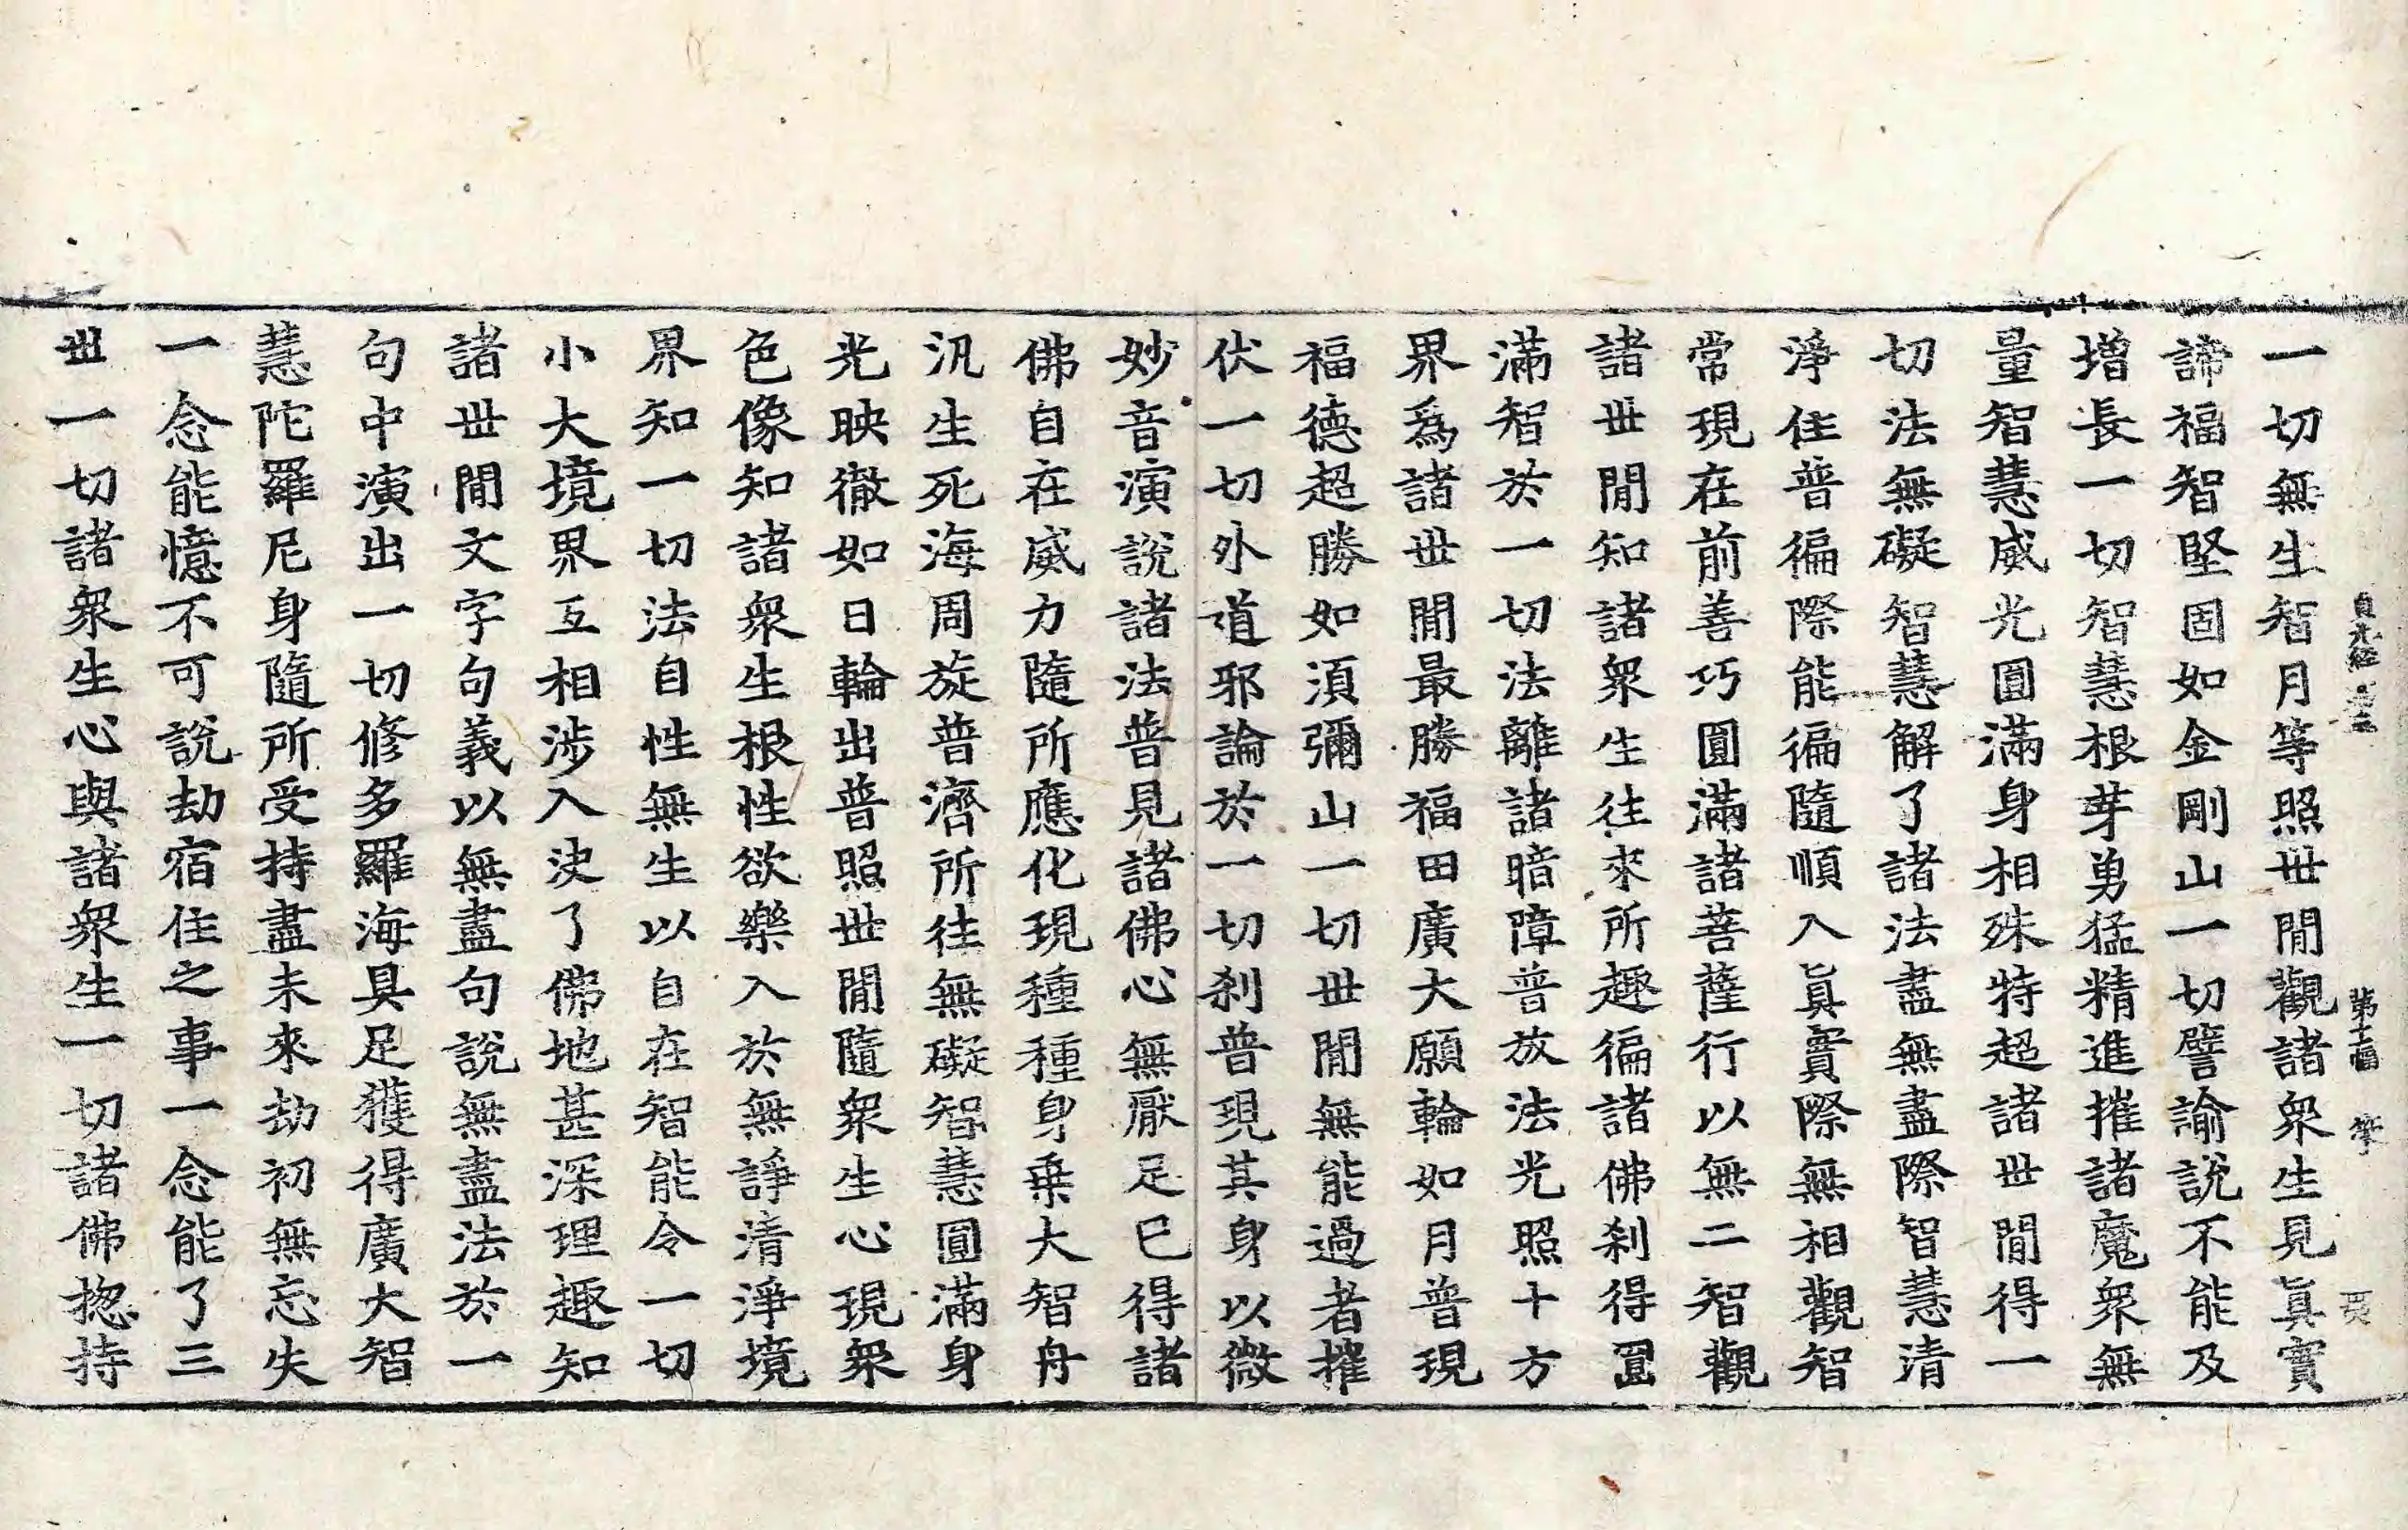 一切無生智月等照世閒觀諸衆生見眞實
諦福智堅固如金剛山一切譬諭說不能及
增長一切智慧根芽勇猛精進摧諸魔衆無
量智慧威光圓滿身相殊特超諸世閒得一
切法無礙智慧解了諸法盡無盡際智慧清
淨住普徧際能徧隨順入眞實際無相觀智
常現在前善巧圓滿諸菩薩行以無二智觀
諸世閒知諸衆生往來所趣徧諸佛刹得圓
滿智於一切法離諸暗障普放法光照十方
界爲諸世閒最勝福田廣大願輪如月普現
福德超勝如須彌山一切世閒無能過者摧
伏一切外道邪論於一切刹普現其身以微
妙音演說諸法普見諸佛心無厭足已得諸
佛自在威力隨所應化現種種身乗大智舟
汎生死海周旋普濟所往無礙智慧圓滿身
光映徹如日輪出普照世閒隨衆生心現衆
色像知諸衆生根性欲樂入於無諍清淨境
界知一切法自性無生以自在智能令一切
小大境界互相涉入決了佛地甚深理趣知
諸世閒文字句義以無盡句說無盡法於一
句中演出一切修多羅海具足獲得廣大智
慧陀羅尼身隨所受持盡未來劫初無忘失
一念能憶不可說劫宿住之事一念能了三
世一切諸衆生心與諸衆生一切諸佛揔持